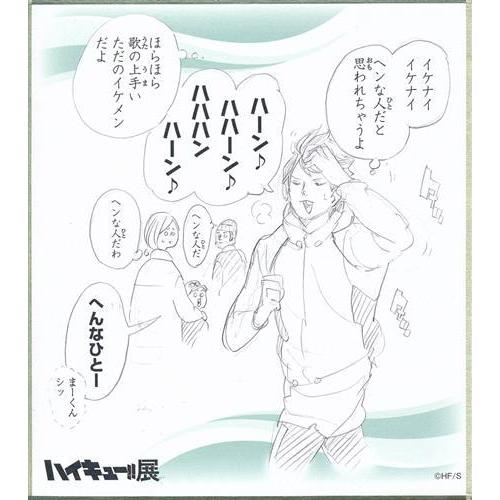 イケナイ
イケナイ
ヘンな人だと
思われちゃうよ
ハーン♪
ハハーン♪
ハハハン
ハーン♪
ほらほら
歌の上手い
ただのイケメン
だよ
ヘンな人だ
ヘンな人だわ
へんなひとー
まーくん
シッ
ハイキュー!!展
©HF/S